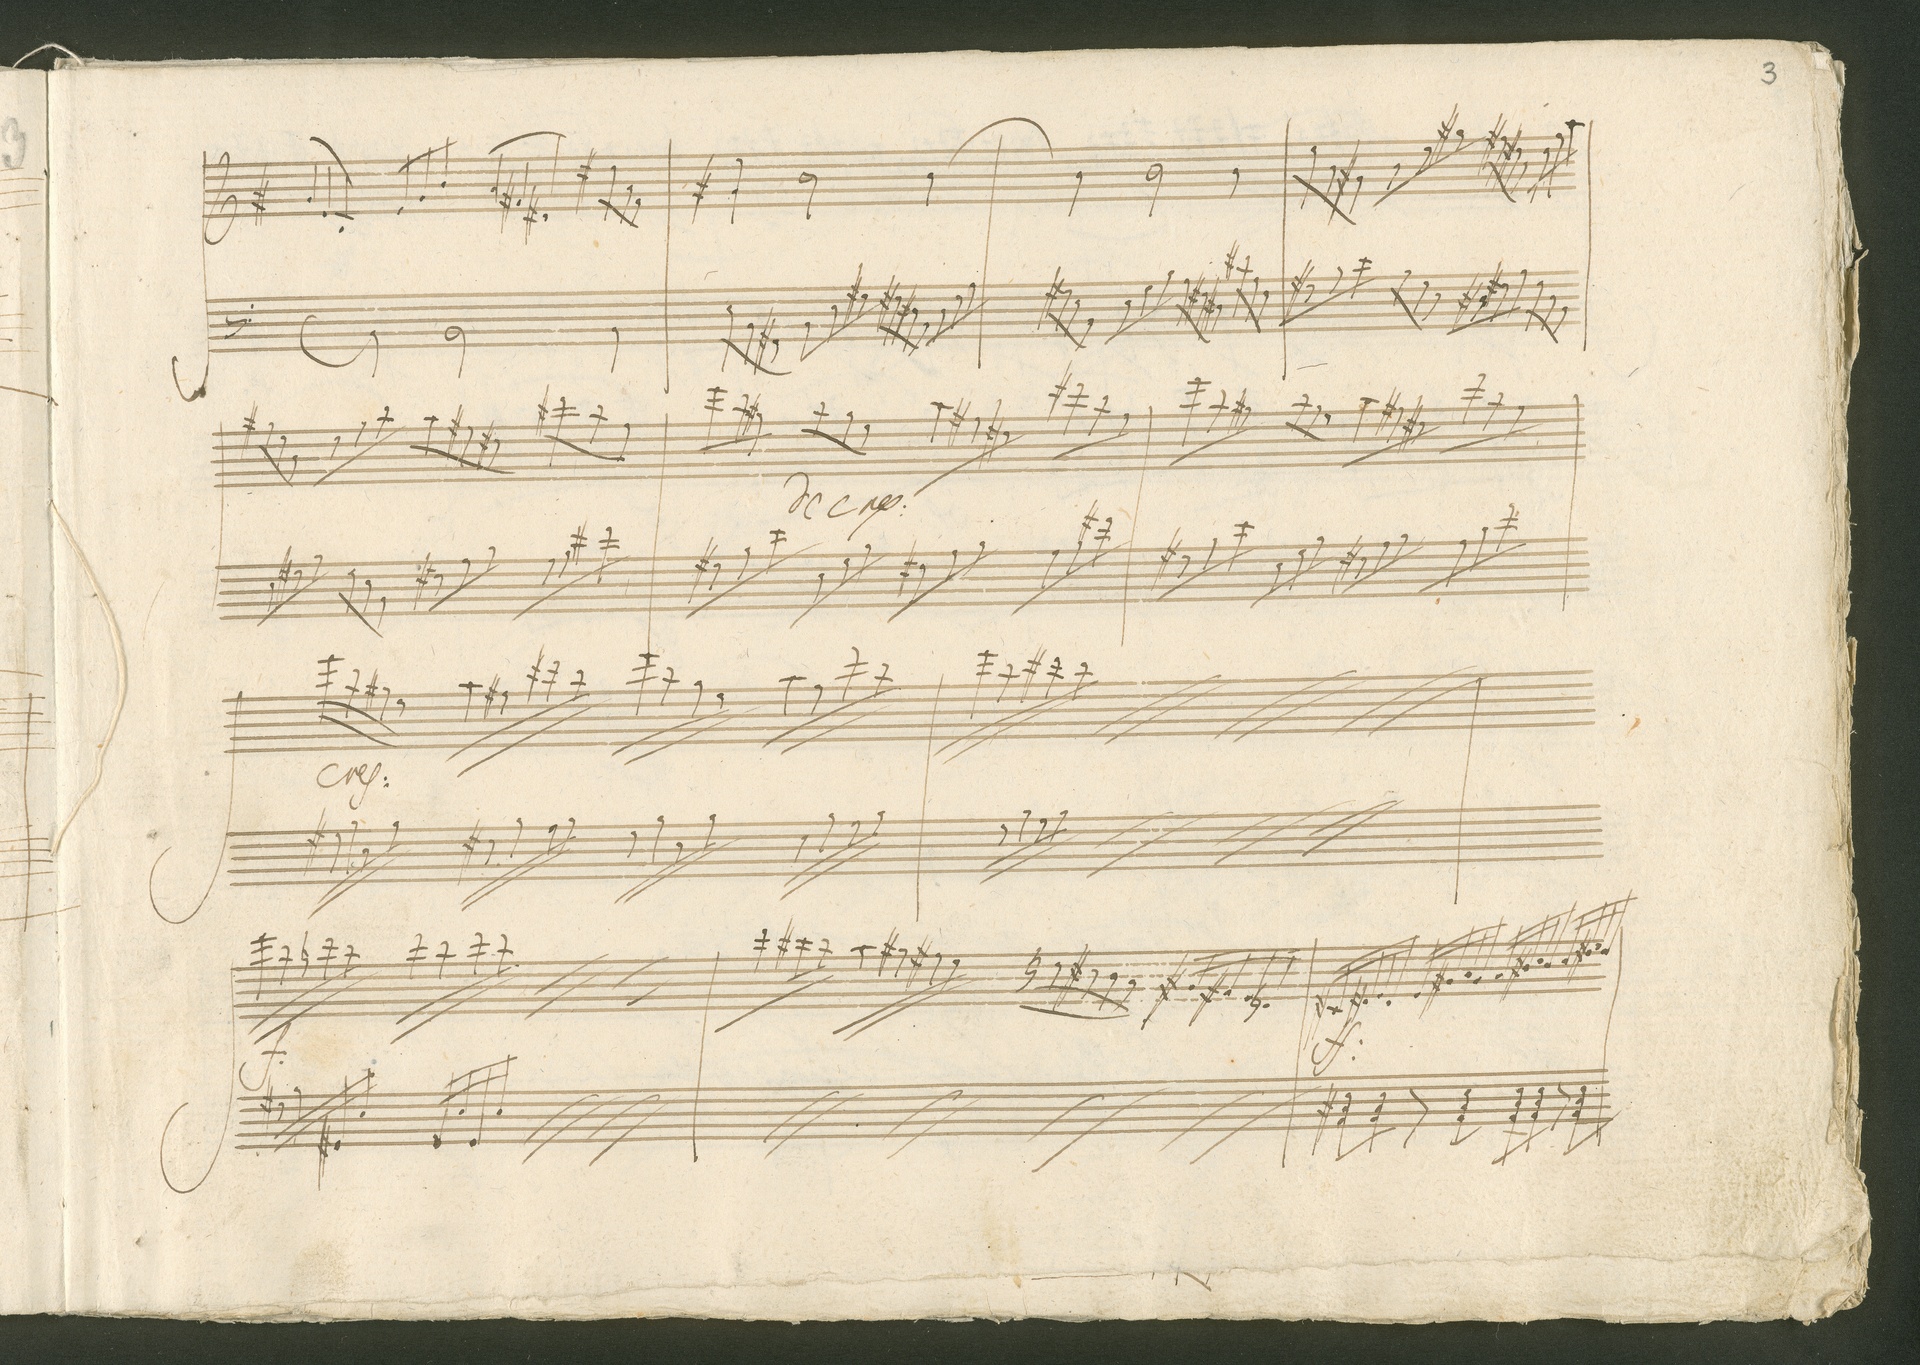 3
decresc:
cresc:
f.
f: